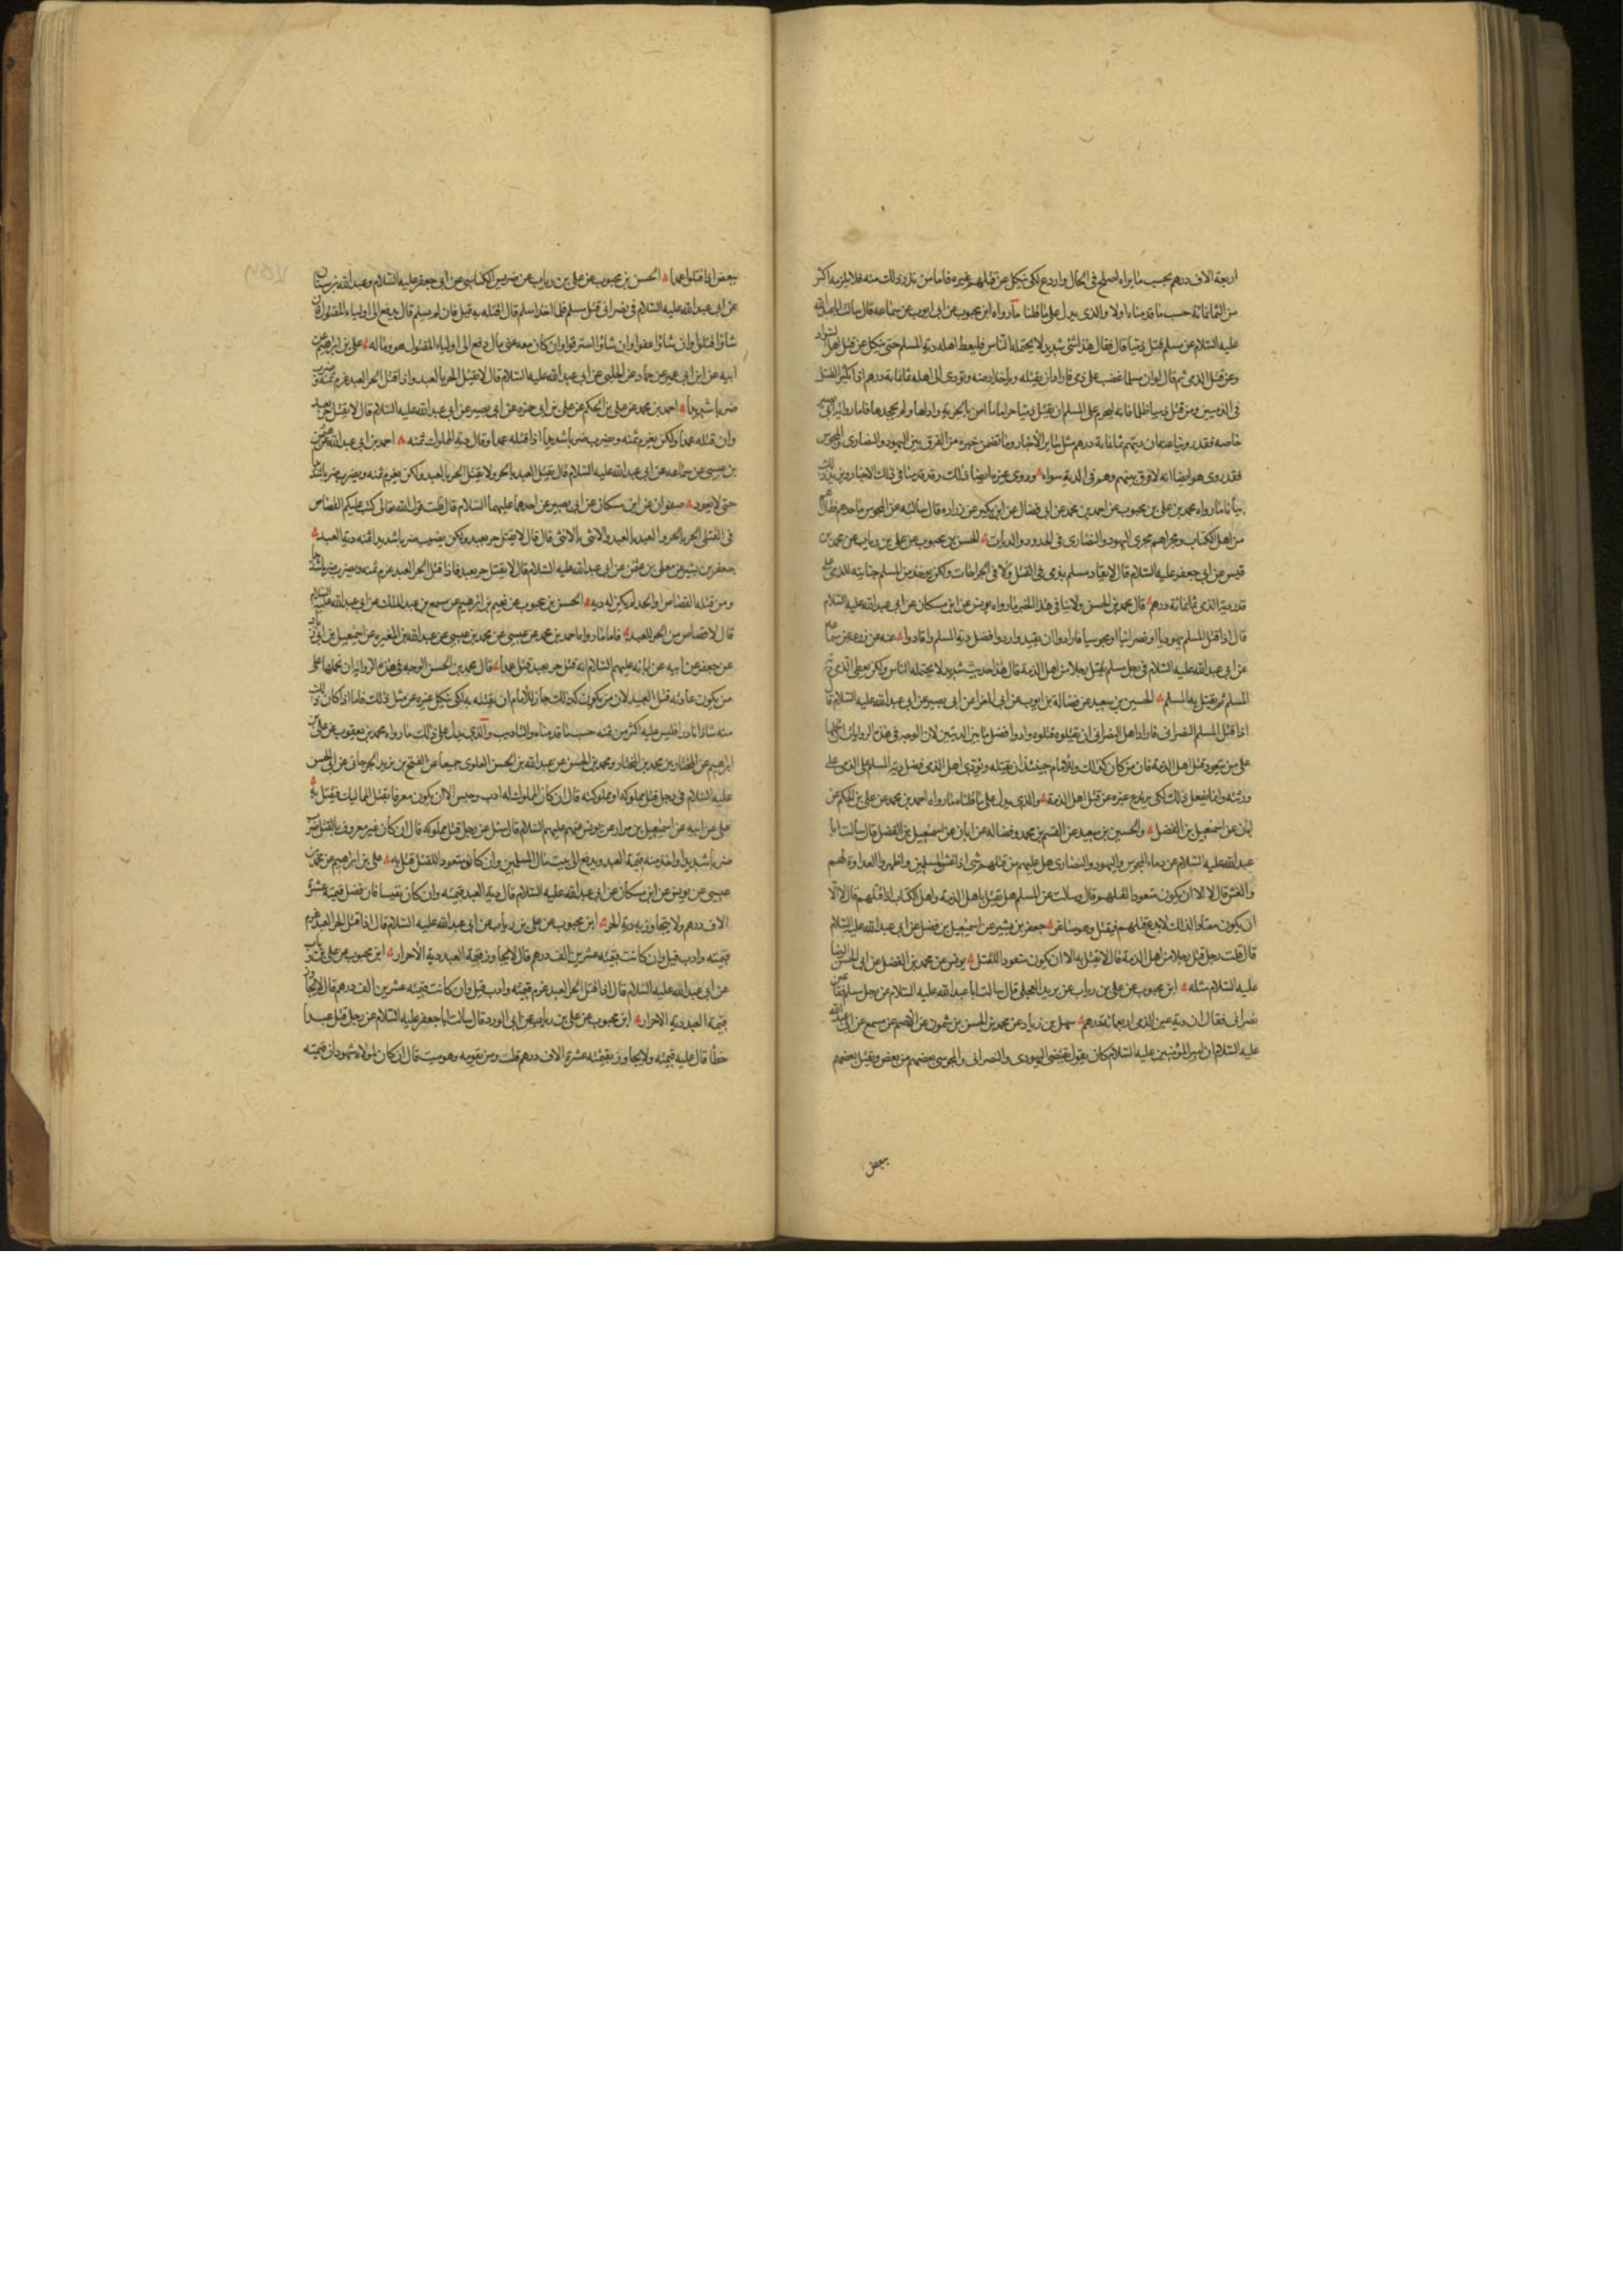 اربعة الاف درهم بحسب ما يراه اصلح في الحال واردع لكي ينكل عن قتلهم غيره فاما من ندر ذلك منه فلا يلزمه اكثر
من الثمانمائة حسب ما قدمناه اولا والذي يدل على ما قلنا ما رواه ابن محبوب عن ابي ايوب عن سماعه قال سالت ابا عبد الله
عليه السلام عن مسلم قتل ذميا قال فقال هذا شئ شديد لا يحتمله الناس فليعط اهله دية المسلم حتى ينكل عن قتل اهل السواد
وعن قتل الذمي ثم قال لو ان مسلما غضب على ذمي فاراد ان يقتله وياخذ ارضه ويؤدي الى اهله ثمانماية درهم اذا يكثر القتل
في الذميين ومن قتل ذميا ظلما فانه ليحرم على المسلم ان يقتل ذميا حراما ما امن بالجزية واداها ولم يجحدها فاما رواية ابي بصير
خاصه فقد روينا عنه ان ديتهم ثمانماية درهم مثل ساير الاخبار وما تضمن خبره من الفرق بين اليهود والنصارى والمجوس
فقد روى هو ايضا انه لا فرق بينهم وهم في الدية سواء وروى غيره ايضا ذلك وقد قدمنا في ذلك الاخبار ويزيد ذلك
بيانا ما رواه محمد بن علي بن محبوب عن احمد بن محمد عن ابن فضال عن ابن بكير عن زراره قال سالته عن المجوس ما حدهم فقال هم
من اهل الكتاب ومجراهم مجرى اليهود والنصارى في الحدود والديات الحسن بن محبوب عن علي بن رياب عن محمد بن
قيس عن ابي جعفر عليه السلام قال لا يقاد مسلم بذمي في القتل ولا في الجراحات ولكن يوخذ من المسلم جنايته للذمي على
قدر دية الذمي ثمانمائة درهم قال محمد بن الحسن ولا ينافي هذا الخبر ما رواه يونس عن ابن مسكان عن ابي عبد الله عليه السلام
قال اذا قتل المسلم يهوديا او نصرانيا او مجوسيا فارادوا ان يقيدوا ردوا فضل دية المسلم واقادوا عنه عن زرعه عن سماعه
عن ابي عبد الله عليه السلام في رجل مسلم يقتل رجلا من اهل الذمة قال هذا حديث شديد لا يحتمله الناس ولكن يعطى الذمي دية
المسلم ثم يقتل به المسلم الحسين بن سعيد عن فضالة بن ايوب عن ابي المغرا عن ابي بصير عن ابي عبد الله عليه السلام قال
اذا قتل المسلم النصراني فاراد اهل النصراني ان يقتلوه قتلوه وادوا فضل ما بين الديتين لان الوجه في هذه الروايات ان نحملها
على من يتعود قتل اهل الذمة فان من كان كذلك فللامام حينئذ ان يقتله ويؤدي اهل الذمي فضل دية المسلم على الذمي على
ورثته وانما يفعل ذلك لكي يرتدع غيره عن قتل اهل الذمة والذي يدل على ما قلناه ما رواه احمد بن محمد عن علي بن الحكم عن
ابان عن اسمعيل بن الفضل والحسين بن سعيد عن القسم بن محمد وفضاله عن ابان عن اسمعيل بن الفضل قال سالت ابا
عبد الله عليه السلام عن دماء المجوس واليهود والنصارى هل عليهم من قتلهم شئ اذا غشوا المسلمين واظهروا العداوة لهم
والغش قال لا الا ان يكون متعودا لقتلهم قال وسالت عن المسلم هل يقتل باهل الذمة واهل الكتاب اذا قتلهم قال لا الا
ان يكون معتادا لذلك لا يدع قتلهم فيقتل وهو صاغر جعفر بن بشير عن اسمعيل بن فضل عن ابي عبد الله عليه السلام
قال قلت رجل قتل رجلا من اهل الذمة قال لا يقتل به الا ان يكون متعودا للقتل يونس عن محمد بن الفضل عن ابي الحسن الرضا
عليه السلام مثله ابن محبوب عن علي بن رياب عن بريد العجلي قال سالت ابا عبد الله عليه السلام عن رجل مسلم فقا عين
نصراني فقال ان دية عين الذمي اربعمائة درهم سهل بن زياد عن محمد بن الحسن بن شمون عن الاصم عن مسمع عن ابي عبد الله
عليه السلام ان امير المؤمنين عليه السلام كان يقول يقتص اليهودي والنصراني والمجوسي بعضهم من بعض ويقتل بعضهم
بعض
ببعض اذا قتلوا عمدا الحسن بن محبوب عن علي بن رياب عن ضريس الكناسي عن ابي جعفر عليه السلام وعبد الله بن سنان
عن ابي عبد الله عليه السلام في نصراني قتل مسلم فلما اخذ اسلم قال اقتله به قيل فان لم يسلم قال يدفع الى اولياء المقتول فان
شاؤا قتلوا وان شاؤا عفوا وان شاؤا استرقوا وان كان معه عين مال دفع الى اولياء المقتول هو وماله علي بن ابراهيم عن
ابيه عن ابن ابي عمير عن حماد عن الحلبي عن ابي عبد الله عليه السلام قال لا يقتل الحر بالعبد واذا قتل الحر العبد غرم ثمنه وضرب
ضربا شديدا احمد بن محمد عن علي بن الحكم عن علي بن ابي حمزه عن ابي بصير عن ابي عبد الله عليه السلام قال لا يقتل حر بعبد
وان قتله عمدا ولكن يغرم ثمنه ويضرب ضربا شديدا اذا قتله عمدا وقال دية المملوك ثمنه احمد بن ابي عبد الله عن عثمن
بن عيسى عن سماعه عن ابي عبد الله عليه السلام قال يقتل العبد بالحر ولا يقتل الحر بالعبد ولكن يغرم ثمنه ويضرب ضربا شديدا
حتى لا يعود صفوان عن ابن مسكان عن ابي بصير عن احدهما عليهما السلام قال قلت قول الله تعالى كتب عليكم القصاص
في القتلى الحر بالحر والعبد بالعبد والانثى بالانثى قال قال لا يقتل حر بعبد ولكن يضرب ضربا شديدا ويغرم ثمنه دية العبد
جعفر بن بشير عن معلى بن عثمن عن ابي عبد الله عليه السلام قال لا يقتل حر بعبد فاذا قتل الحر العبد غرم ثمنه وضرب ضربا شديدا
ومن قتله القصاص او الحد لم يكن له دية الحسن بن محبوب عن نعيم بن ابراهيم عن مسمع بن عبد الملك عن ابي عبد الله عليه السلام
قال لا قصاص بين الحر والعبد فاما ما رواه احمد بن محمد عن عيسى عن محمد بن عيسى عن عبد الله بن المغيره عن اسمعيل بن ابي زياد
عن جعفر عن ابيه عن ابائه عليهم السلام انه قتل حر بعبد قتل عمدا قال محمد بن الحسن الوجه في هذه الرواية ان نحملها على
من يكون عادته قتل العبيد لان من يكون كذلك جاز للامام ان يقتله به لكي ينكل غيره عن مثل ذلك فاما اذا كان ذلك
منه شاذا نادرا فليس عليه اكثر من ثمنه حسب ما قدمناه والتاديب والذي يدل على ذلك ما رواه محمد بن يعقوب عن علي بن
ابراهيم عن المختار بن محمد بن المختار ومحمد بن الحسن عن عبد الله بن الحسن العلوي جميعا عن الفتح بن يزيد الجرجاني عن ابي الحسن
عليه السلام في رجل قتل مملوكه او مملوكته قال ان كان المملوك له ادب وحبس الا ان يكون معروفا بقتل المماليك فيقتل به
علي عن ابيه عن اسمعيل بن مرار عن يونس عنهم عليهم السلام قال سئل عن رجل قتل مملوكه قال ان كان غير معروف بالقتل ضرب
ضربا شديدا واخذ منه قيمة العبد ويدفع الى بيت مال المسلمين وان كان متعودا للقتل قتل به علي بن ابراهيم عن محمد بن
عيسى عن يونس عن ابن مسكان عن ابي عبد الله عليه السلام قال دية العبد قيمته وان كان نفيسا فافضل قيمته عشرة
الاف درهم ولا يتجاوز به دية الحر ابن محبوب عن علي بن رياب عن ابي عبد الله عليه السلام قال اذا قتل الحر العبد غرم
قيمته وادب قيل وان كانت قيمته عشرين الف درهم قال لا يجاوز قيمة العبد دية الاحرار ابن محبوب عن علي بن رياب
عن ابي عبد الله عليه السلام قال اذا قتل الحر العبد غرم قيمته وادب قيل وان كانت قيمته عشرين الف درهم قال لا يجاوز
بقيمة العبد دية الاحرار ابن محبوب عن علي بن رياب عن ابي الورد قال سالت ابا جعفر عليه السلام عن رجل قتل عبدا
خطأ قال عليه قيمته ولا يجاوز بقيمته عشرة الاف درهم قلت ومن يقومه وهو ميت قال ان كان لمولاه شهود ان قيمته